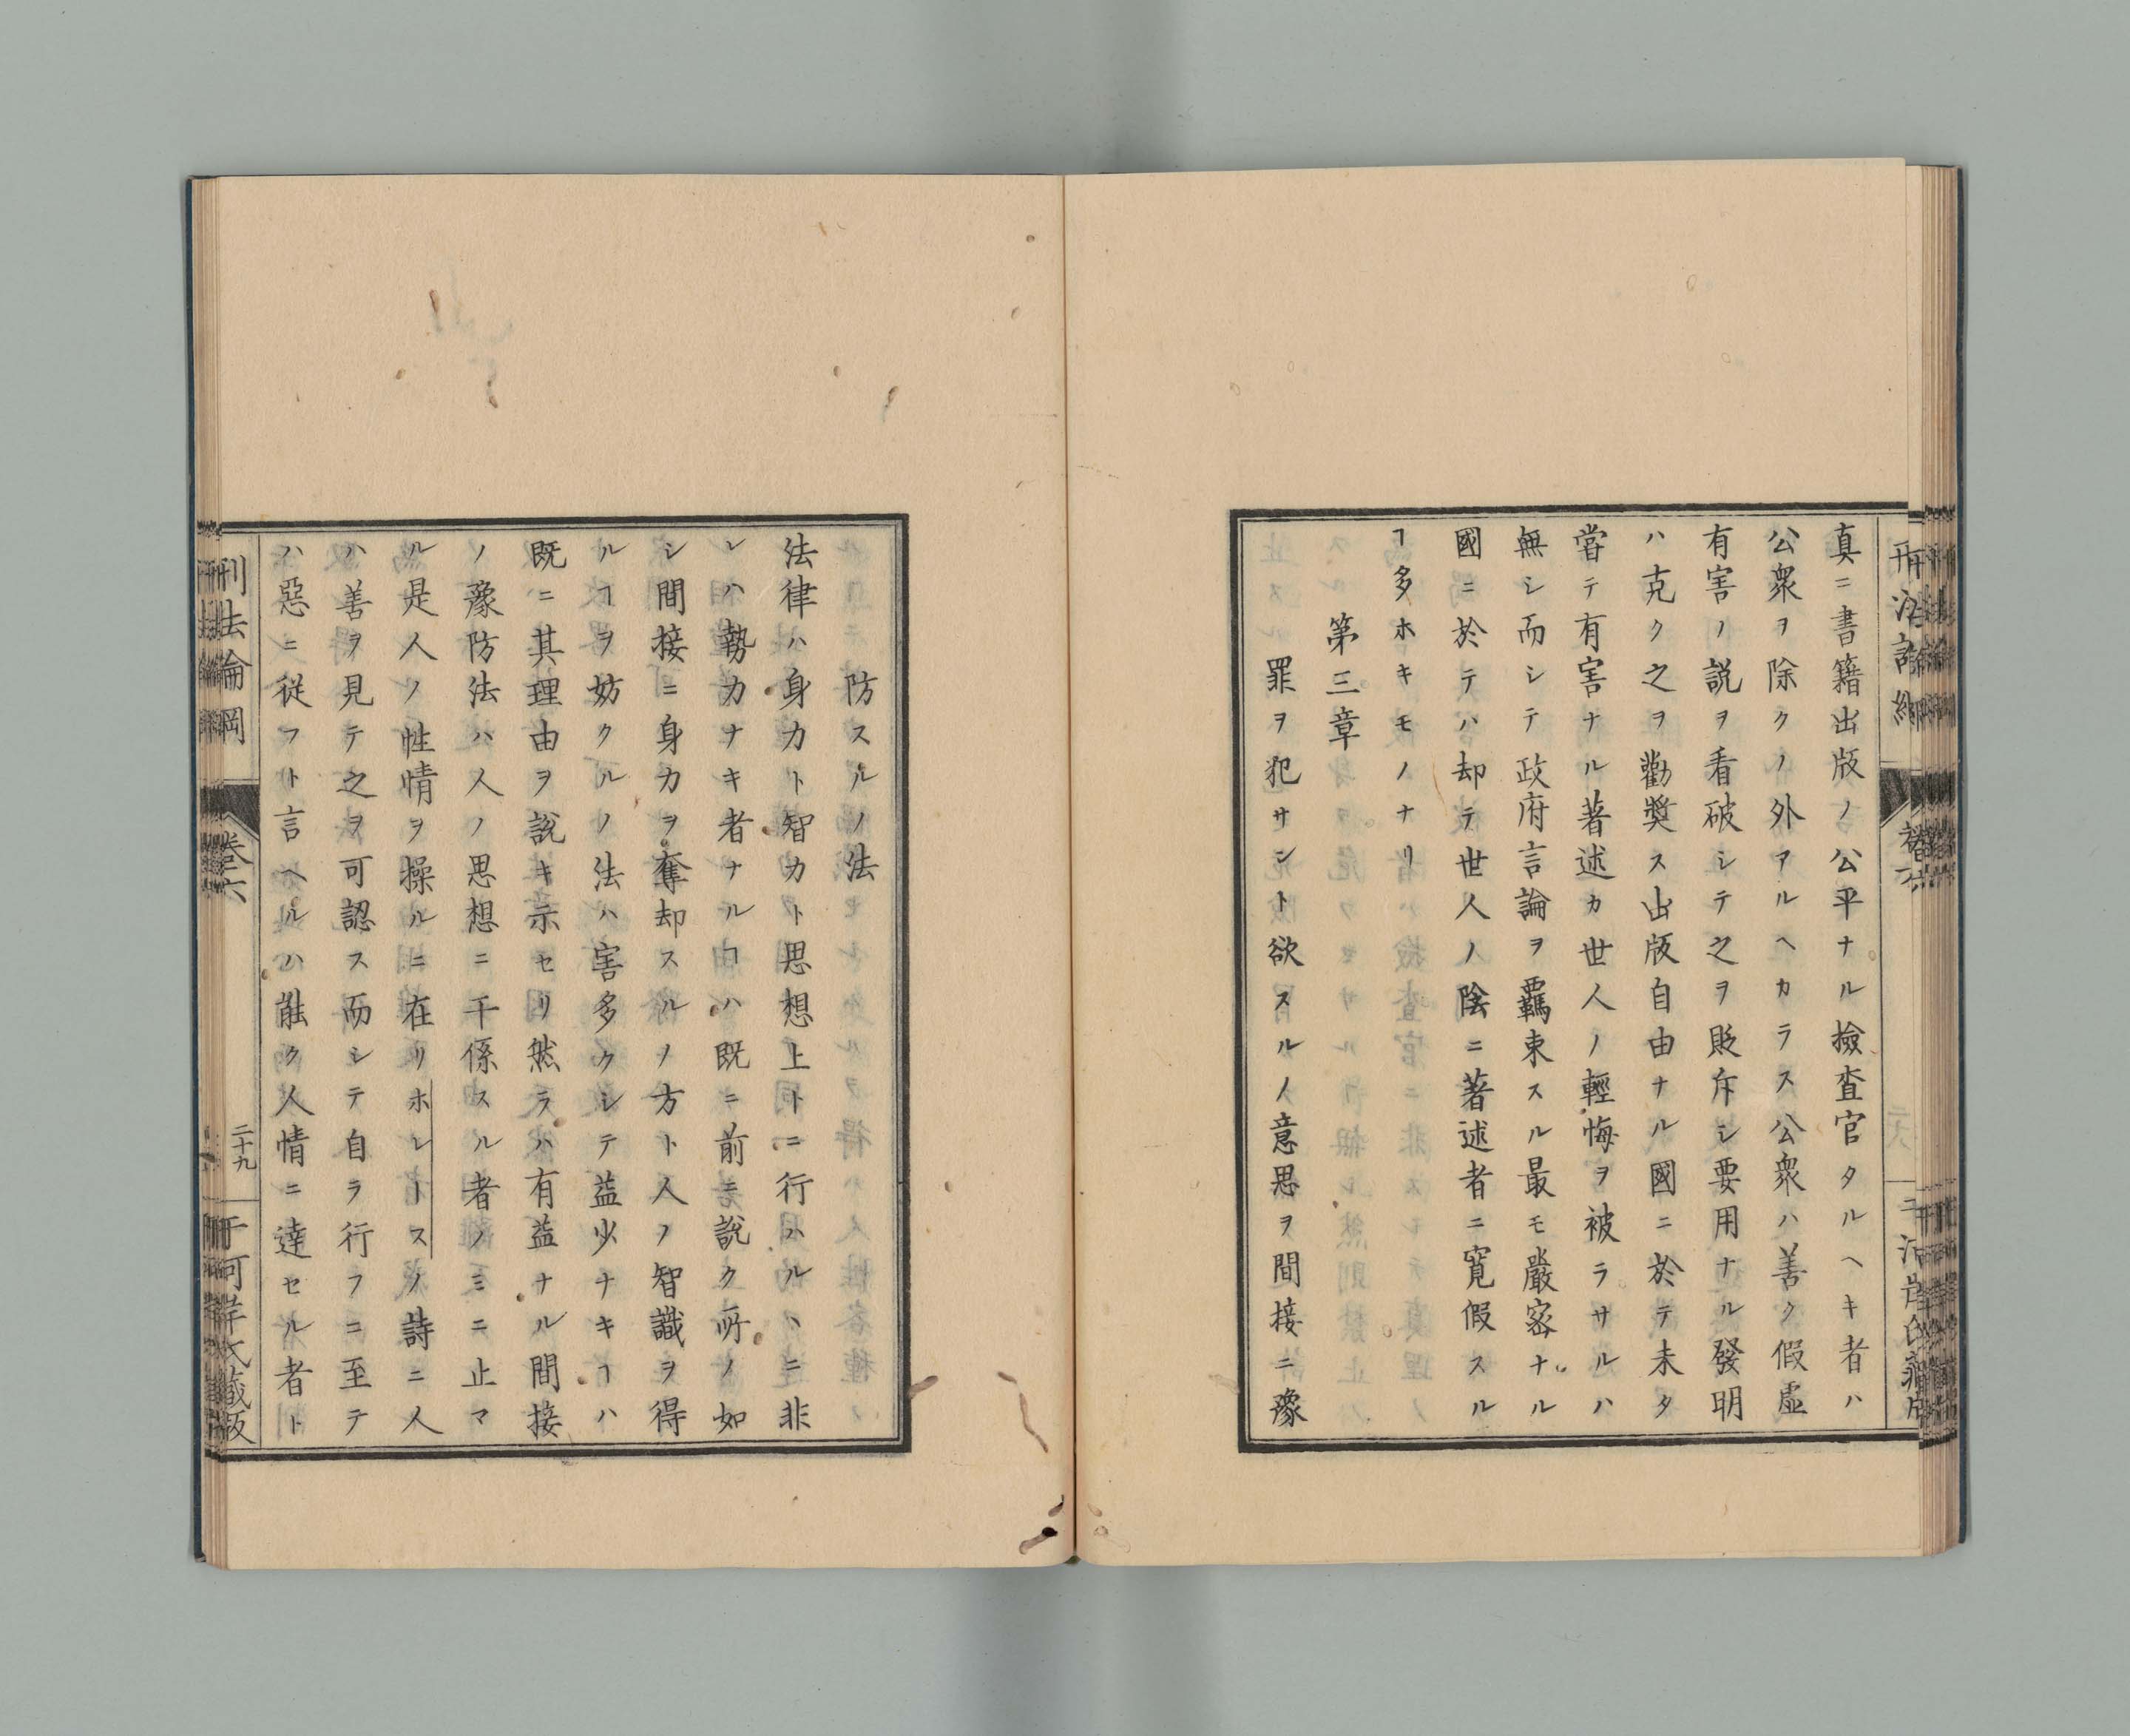 真ニ書籍出版ノ公平ナル撿査官タルヘキ者ハ
公衆ヲ除クノ外アルヘカラス公衆ハ善ク假虚
有害ノ説ヲ看破シテ之ヲ貶斥シ要用ナル發明
ハ克ク之ヲ勸奬ス出版自由ナル國ニ於テ未タ
甞テ有害ナル著述カ世人ノ輕悔ヲ被ラサルハ
無シ而シテ政府言論ヲ羈束スル最モ嚴密ナル
國ニ於テハ却テ世人ノ陰ニ著述者ニ寛假スル
ヿ多ホキモノナリ
第三章
罪ヲ犯サシト欲スルノ意思ヲ間接ニ豫
防スルノ法
法律ハ身力ト智力ト思想上トニ行ハルヽニ非
レハ勢力ナキ者ナルヿハ既ニ前ニ說ク所ノ如
シ間接ニ身力ヲ奪却スルノ方ト人ノ智識ヲ得
ルヿヲ妨クルノ法ハ害多クシテ益少ナキヿハ
既ニ其理由ヲ說キ示セリ然ラハ有益ナル間接
ノ豫防法ハ人ノ思想ニ干係スル者ノミニ止マ
ル是人ノ性情ヲ操ルニ在リホレースノ詩ニ人
ハ善ヲ見テ之ヲ可認ス而シテ自ラ行フニ至テ
ハ惡ニ從フト言ヘルハ能ク人情ニ達セル者ト
刑法論綱
卷之六
二十九